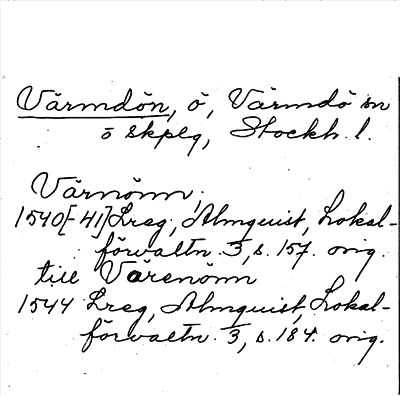 Värmdön, ö, Värmdö sn
ö skplg, Stockh. l.
Värnönn;
1540[-41] Lreg; Almquist, Lokal-
förvaltn. 3, s. 157. orig.
till Värenönn
1544 Lreg, Almquist, Lokal-
förvaltn. 3, s. 184. orig.